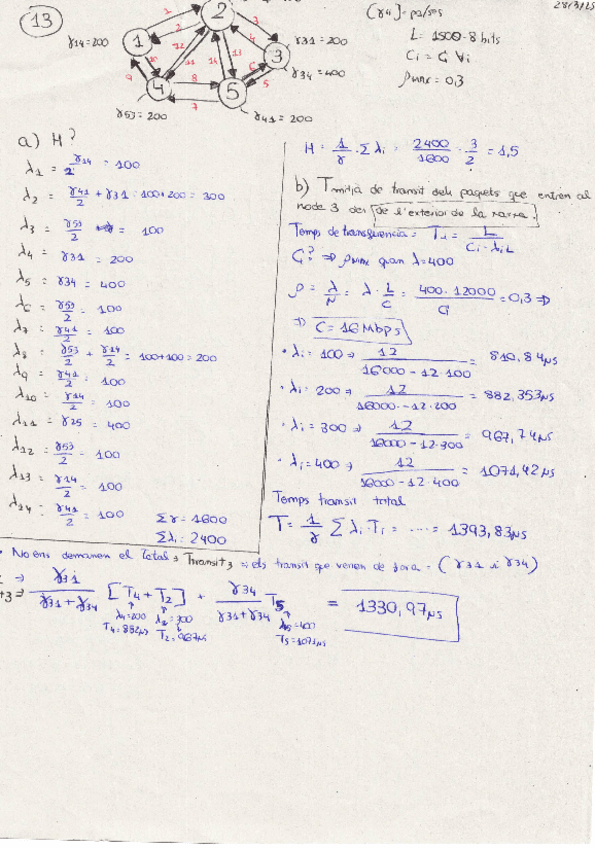 28/3/25
13
1
2
3
4
5
1
2
3
4
5
6
7
8
9
10
11
12
13
14
γ14=200
γ31=200
γ34=400
γ53=200
γ41=200
L= 1500·8 bits
Ci = C ∀i
ρmax = 0,3
a) H?
λ1 = γ14/2 = 100
λ2 = γ41/2 + γ31 = 100+200 = 300
λ3 = γ53/2 = 100
λ4 = γ31 = 200
λ5 = γ34 = 400
λ6 = γ53/2 = 100
λ7 = γ41/2 = 100
λ8 = γ53/2 + γ14/2 = 100+100 = 200
λ9 = γ41/2 = 100
λ10 = γ14/2 = 100
λ11 = γ25 = 400
λ12 = γ53/2 = 100
λ13 = γ14/2 = 100
λ14 = γ41/2 = 100
Σγ = 1600
Σλi = 2400
H = 1/γ · Σ λi = 2400/1600 = 3/2 = 1,5
b) Tmitjà de transit dels paquets que entren al
node 3 des de l'exterior de la xarxa
Temps de transferència = Ti = L/(Ci - λiL)
C? ⇒ ρmax quan λ=400
ρ = λ/μ = λ · L/C = 400·12000/C = 0,3 ⇒
⇒ C = 16 Mbps
· λi = 100 ⇒ 12/(16000 - 12·100) = 810,84μs
· λi = 200 ⇒ 12/(16000 - 12·200) = 882,353μs
· λi = 300 ⇒ 12/(16000 - 12·300) = 967,74μs
· λi = 400 ⇒ 12/(16000 - 12·400) = 1071,42μs
Temps transit total
T = 1/γ Σ λi·Ti = ..... = 1393,83μs
· No ens demanen el total, Ttransit3 = els transit que venen de fora = (γ31 i γ34)
⇒ γ31/(γ31+γ34) [T4 + T2] + γ34/(γ31+γ34) T5 = 1330,97μs
λ4=200 λ2=300 λ5=400
T4=882μs T2=967μs T5=1071μs